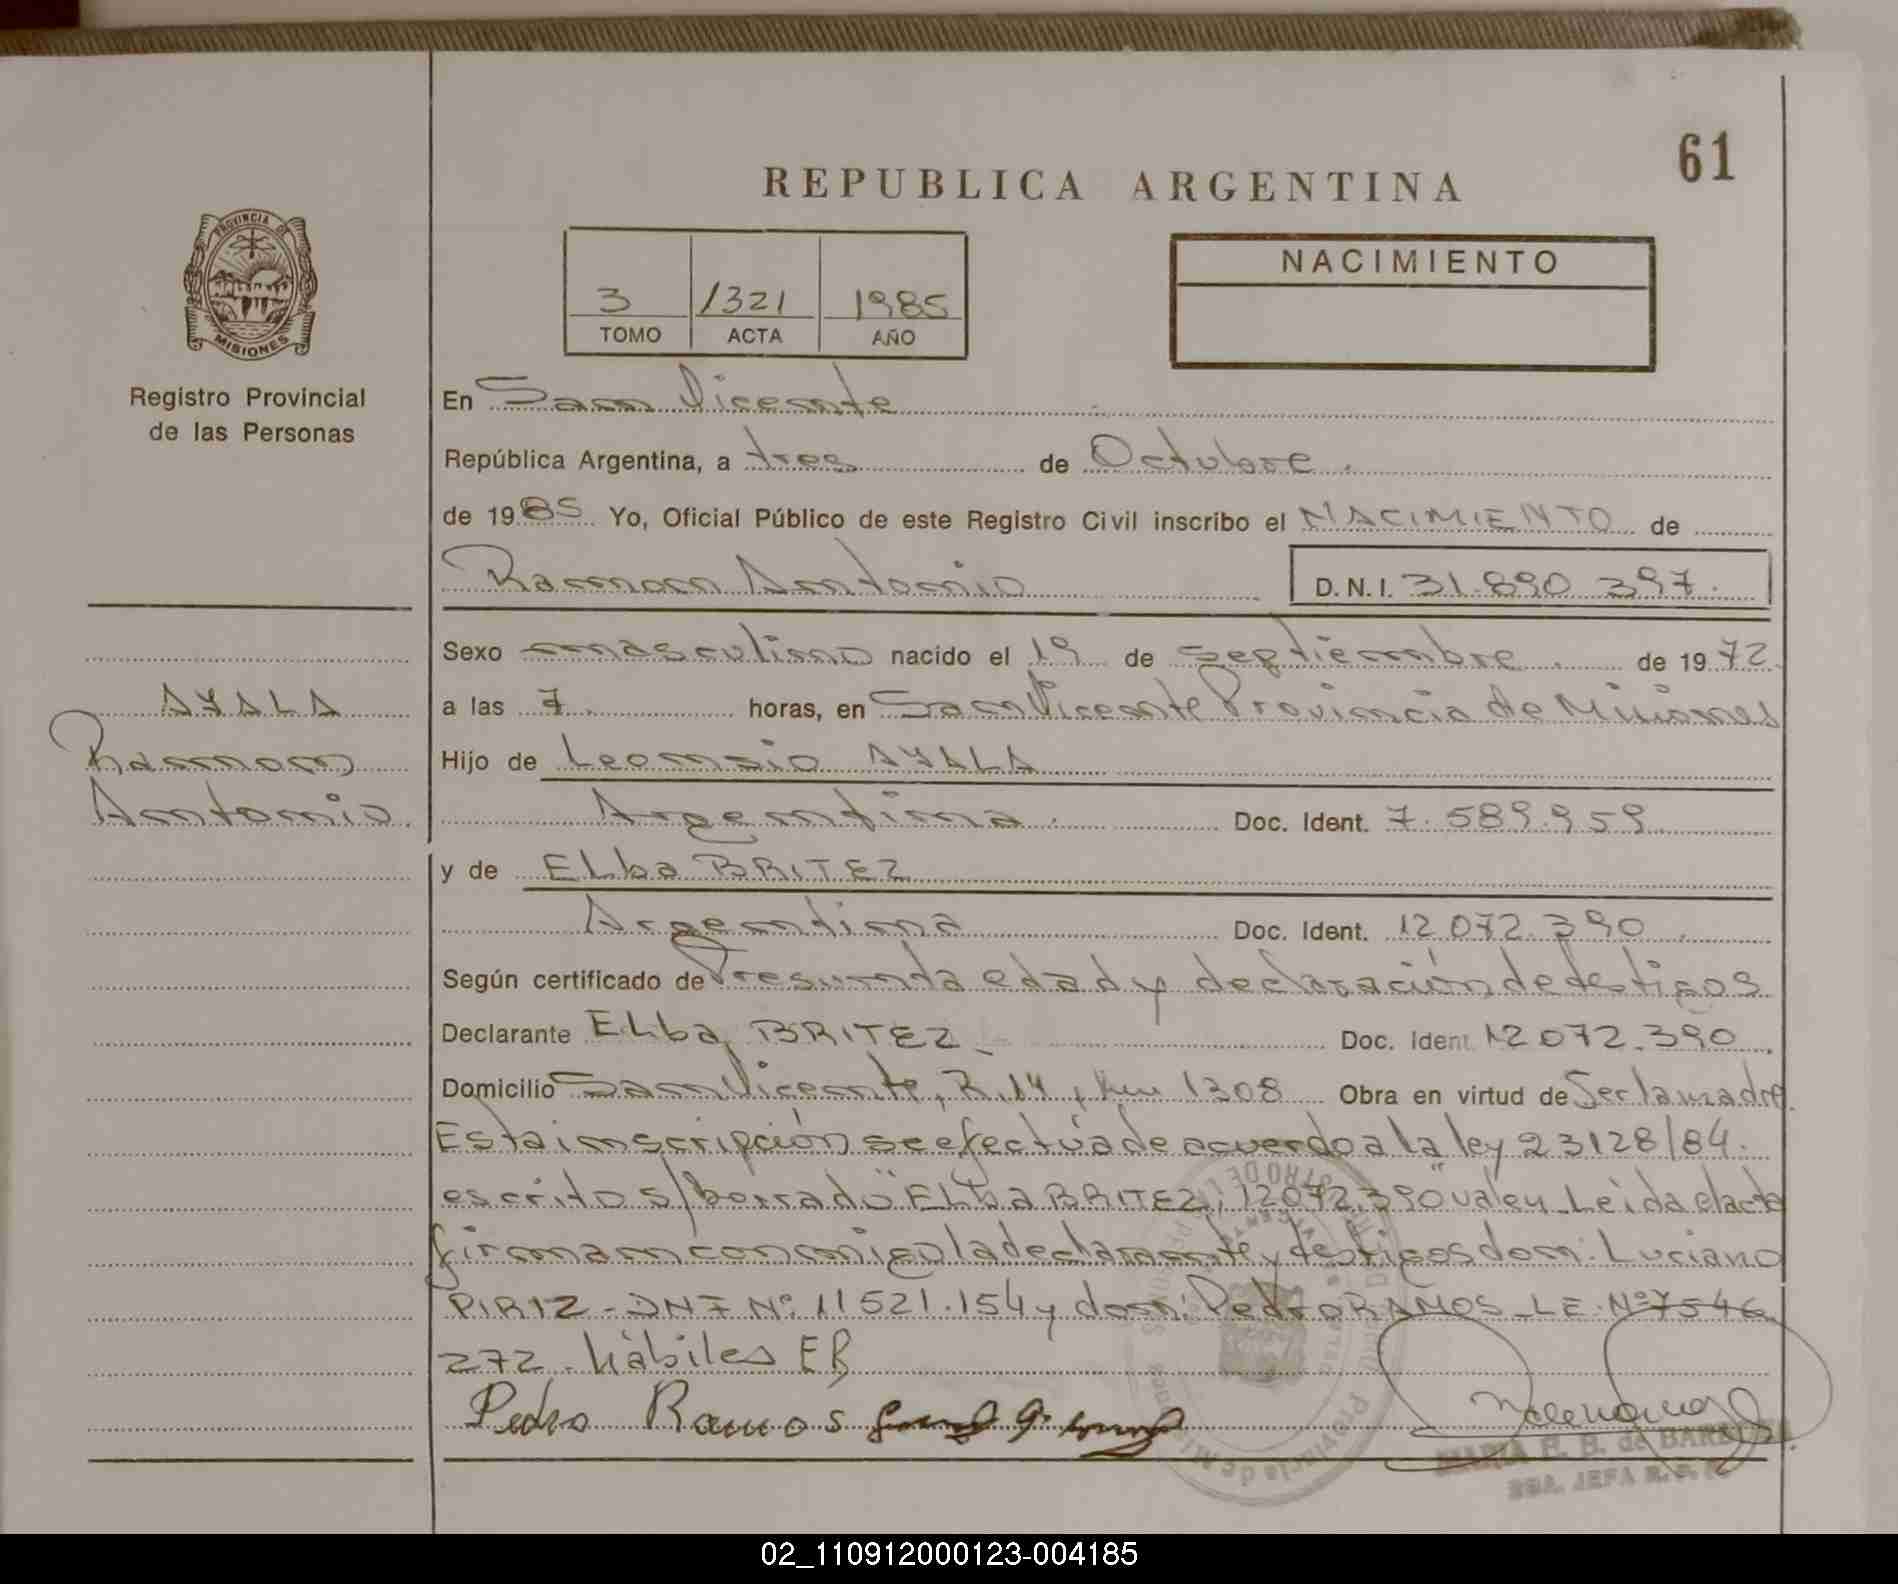 61
REPUBLICA ARGENTINA
PROVINCIA DE
MISIONES
Registro Provincial
de las Personas
3 1321 1985
TOMO ACTA AÑO
NACIMIENTO
En San Vicente
República Argentina, a tres de Octubre.
de 1985 Yo, Oficial Público de este Registro Civil inscribo el NACIMIENTO de
Ramon Antonio D.N.I. 31.890 397.
AYALA
Ramon
Antonio.
Sexo masculino nacido el 19 de septiembre de 1972.
a las 7. horas, en San Vicente Provincia de Misiones
Hijo de Leonsio AYALA
Argentina. Doc. Ident. 7.589.959
y de ELba BRITEZ
Argentina Doc. Ident. 12 072.390
Según certificado de Presunta edad y declaración de testigos
Declarante ELba BRITEZ Doc. Ident. 12 072.390
Domicilio San Vicente, R.14, km 1308 Obra en virtud de Ser la madre.
Esta inscripción se efectúa de acuerdo a la ley 23128/84.
escrito s/borrado "ELba BRITEZ; 12072.390" valen. Leida el acta
firman conmigo la declarante y testigos don: Luciano
PIRIZ - DNI Nº: 11521.154 y don: Pedro RAMOS - LE. Nº 7546
272. hábiles EB
Pedro Ramos
MARIA de
JEFA R. P.
Provincia de
02_110912000123-004185